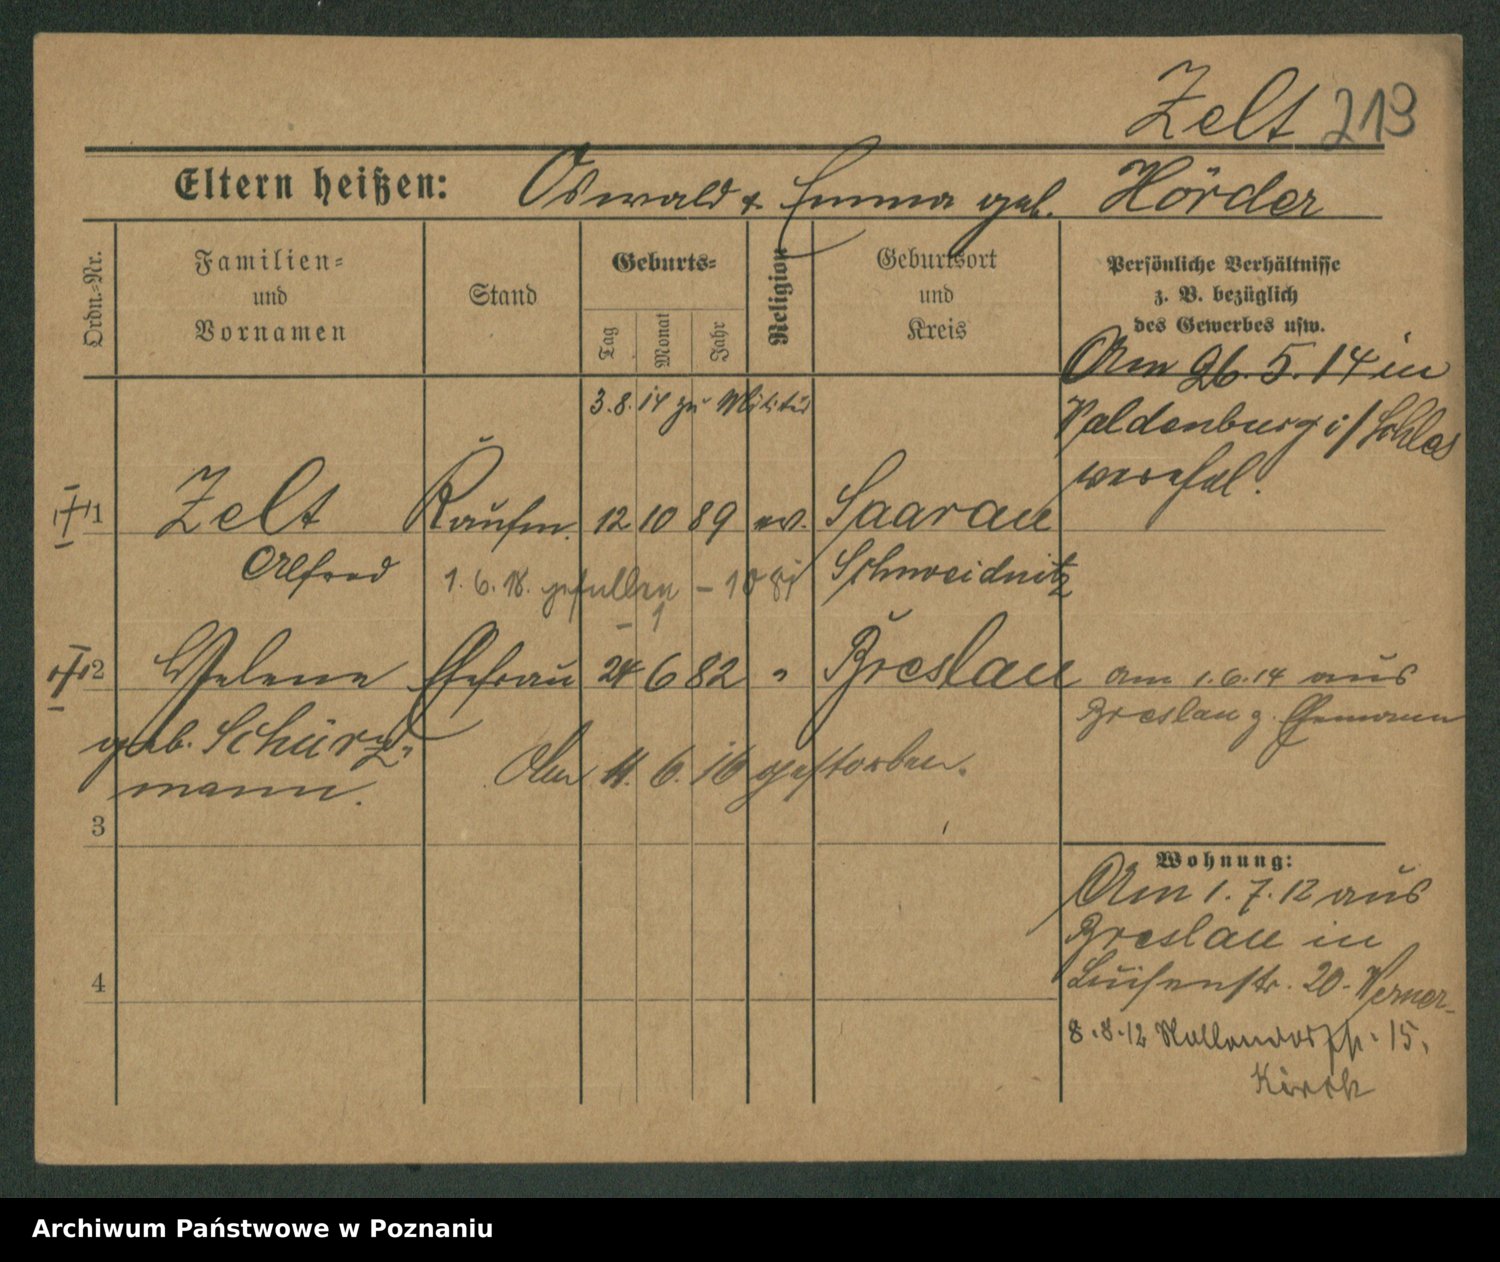 Zelt 213
Eltern heißen: Oswald & Emma geb. Hörder
Ordn.-Nr.
Familien-
und
Vornamen
Stand
Geburts-
Tag
Monat
Jahr
Religion
Geburtsort
und
Kreis
Persönliche Verhältnisse
z. B. bezüglich
des Gewerbes usw.
Am 26. 5. 14 in
Waldenburg i/Schles
verehel.
3.8.14 zu Militär
1 Zelt Kaufm. 12 10 89 ev. Saarau
Alfred 1. 6. 18. gefallen Schweidnitz
2 Helene Ehefrau 24 6 82 " Breslau am 1.6.14 aus
Breslau z. Ehemann
geb. Schürz-
mann. Am 11. 6. 16 gestorben.
3
Wohnung:
Am 1. 7. 12 aus
Breslau in
Luisenstr. 20 - Werner
4
8.8.12 Nollendorfstr. 15.
Archiwum Państwowe w Poznaniu